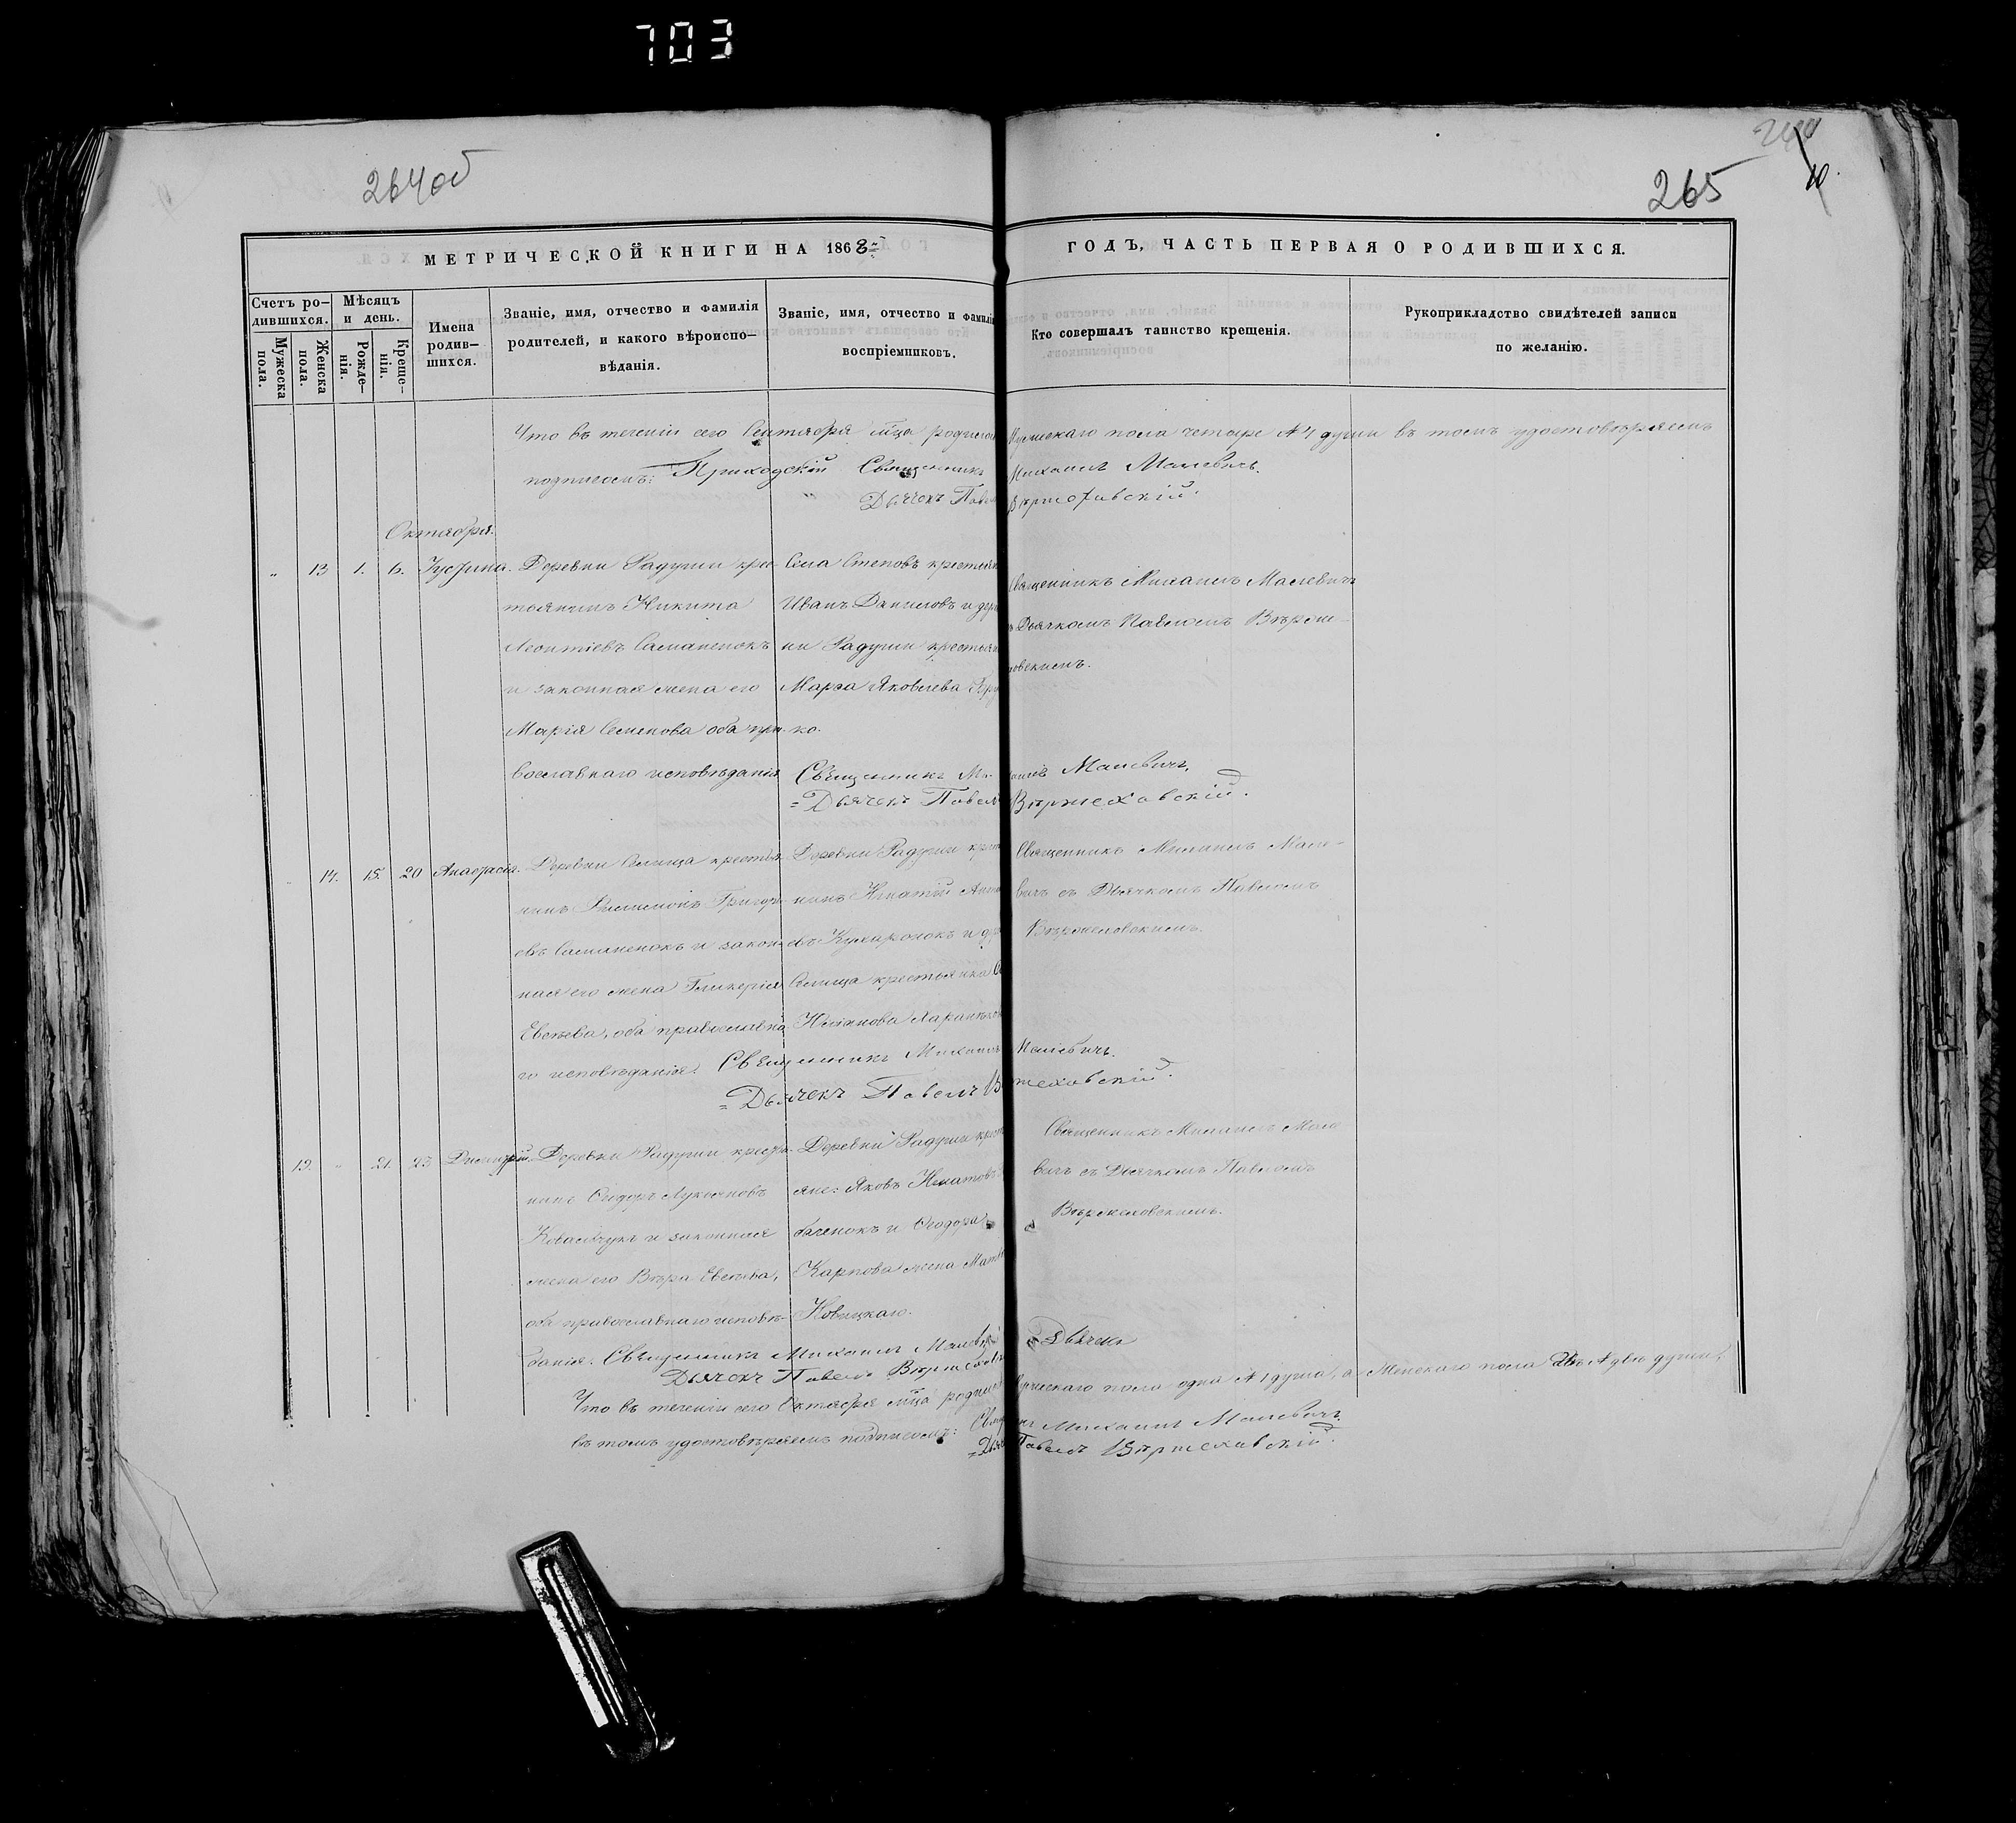 703
264об
265
240
10.
МЕТРИЧЕСКОЙ КНИГИ НА 1868 ГОДЪ, ЧАСТЬ ПЕРВАЯ О РОДИВШИХСЯ.
Счетъ ро-
дившихся.
Мужеска
пола.
Женска
пола.
Мѣсяцъ
и день.
Рожде-
нія.
Креще-
нія.
Имена
родив-
шихся.
Званіе, имя, отчество и фамилія
родителей, и какого вѣроиспо-
вѣданія.
Званіе, имя, отчество и фамилі
воспріемниковъ.
Кто совершалъ таинство крещенія.
Рукоприкладство свидѣтелей записи
по желанію.
Что въ теченіи сего Сентября мца родилось Мужескаго пола четыре № 4 души въ томъ удостовѣряемъ
подписомъ: Приходскій Священникъ Михаилъ Малевичъ.
Дьячекъ Павелъ Вѣржеховскій.
Октября.
" 13 1. 6. Іустина.
Деревни Радуги крес-
тьянинъ Никита
Леонтіевъ
и законная жена его
Марія Семенова оба пра-
вославнаго исповѣданія
Села Степовъ крестьян
Иванъ Даниловъ и дере
ни Радуги крестьян
Марѳа Яковлева
ко.
Священникъ Михаилъ Малевичъ
съ Дьячкомъ Павломъ Вѣрже-
ховскимъ.
Священникъ Михаилъ Малевичъ.
Дьячекъ Павелъ Вѣржеховскій.
14. 15. 20 Анастасія.
Деревни Селища крестья-
нинъ Филимонъ Григорь-
евъ и закон-
ная его жена Гликерія
Евсѣева, оба православна
го исповѣданія.
Деревни Радуги крест
нинъ Игнатій
евъ Кухаронокъ и дер
Селища крестьянка
Священникъ Михаилъ Мале-
вичъ съ Дьячкомъ Павломъ
Вѣржеховскимъ.
Священникъ Михаилъ Малевичъ.
Дьячекъ Павелъ Вѣржеховскій.
19. " 21. 23 Димитрій.
Деревни Радуги крестья-
нинъ Сидоръ Лукьяновъ
Ковальчукъ и законная
жена его Вѣра Евсѣева,
оба православнаго исповѣ-
данія.
Деревни Радуги крест
яне: Яковъ Игнатовъ
баченокъ и Ѳеодора
Карпова жена
Новицкаго.
Священникъ Михаилъ Мале
вичъ съ Дьячкомъ Павломъ
Вѣржеховскимъ.
Священникъ Михаилъ Малевичъ
Дьячекъ
Дьячекъ Павелъ Вѣржеховскій
Что въ теченіи сего Октября мца родилось Мужескаго пола одна № 1 душа, а Женскаго пола двѣ № двѣ души,
въ томъ удостовѣряемъ подписомъ: Священникъ Михаилъ Малевичъ.
Дьячекъ Павелъ Вѣржеховскій.